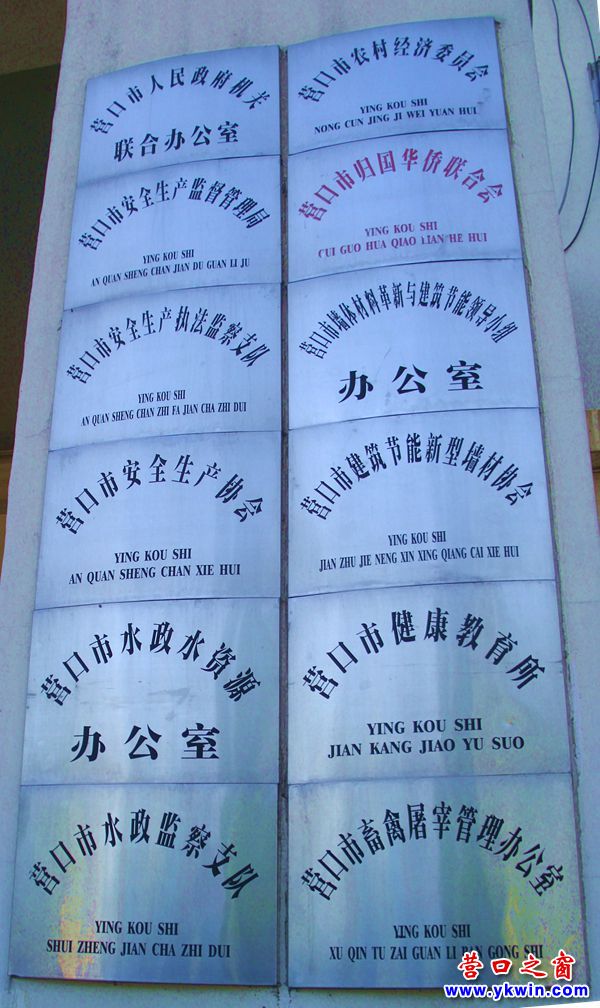 营口市人民政府机关
联合办公室
营口市安全生产监督管理局
YING KOU SHI
AN QUAN SHENG CHAN JIAN DU GUAN LI JU
营口市安全生产执法监察支队
YING KOU SHI
AN QUAN SHENG CHAN ZHI FA JIAN CHA ZHI DUI
营口市安全生产协会
YING KOU SHI
AN QUAN SHENG CHAN XIE HUI
营口市水政水资源
办公室
营口市水政监察支队
YING KOU SHI
SHUI ZHENG JIAN CHA ZHI DUI
营口市农村经济委员会
YING KOU SHI
NONG CUN JING JI WEI YUAN HUI
营口市归国华侨联合会
YING KOU SHI
CUI GUO HUA QIAO LIAN HE HUI
营口市墙体材料革新与建筑节能领导小组
办公室
营口市建筑节能新型墙材协会
YING KOU SHI
JIAN ZHU JIE NENG XIN XING QIANG CAI XIE HUI
营口市健康教育所
YING KOU SHI
JIAN KANG JIAO YU SUO
营口市畜禽屠宰管理办公室
YING KOU SHI
XU QIN TU ZAI GUAN LI BAN GONG SHI
营口之窗
www.ykwin.com